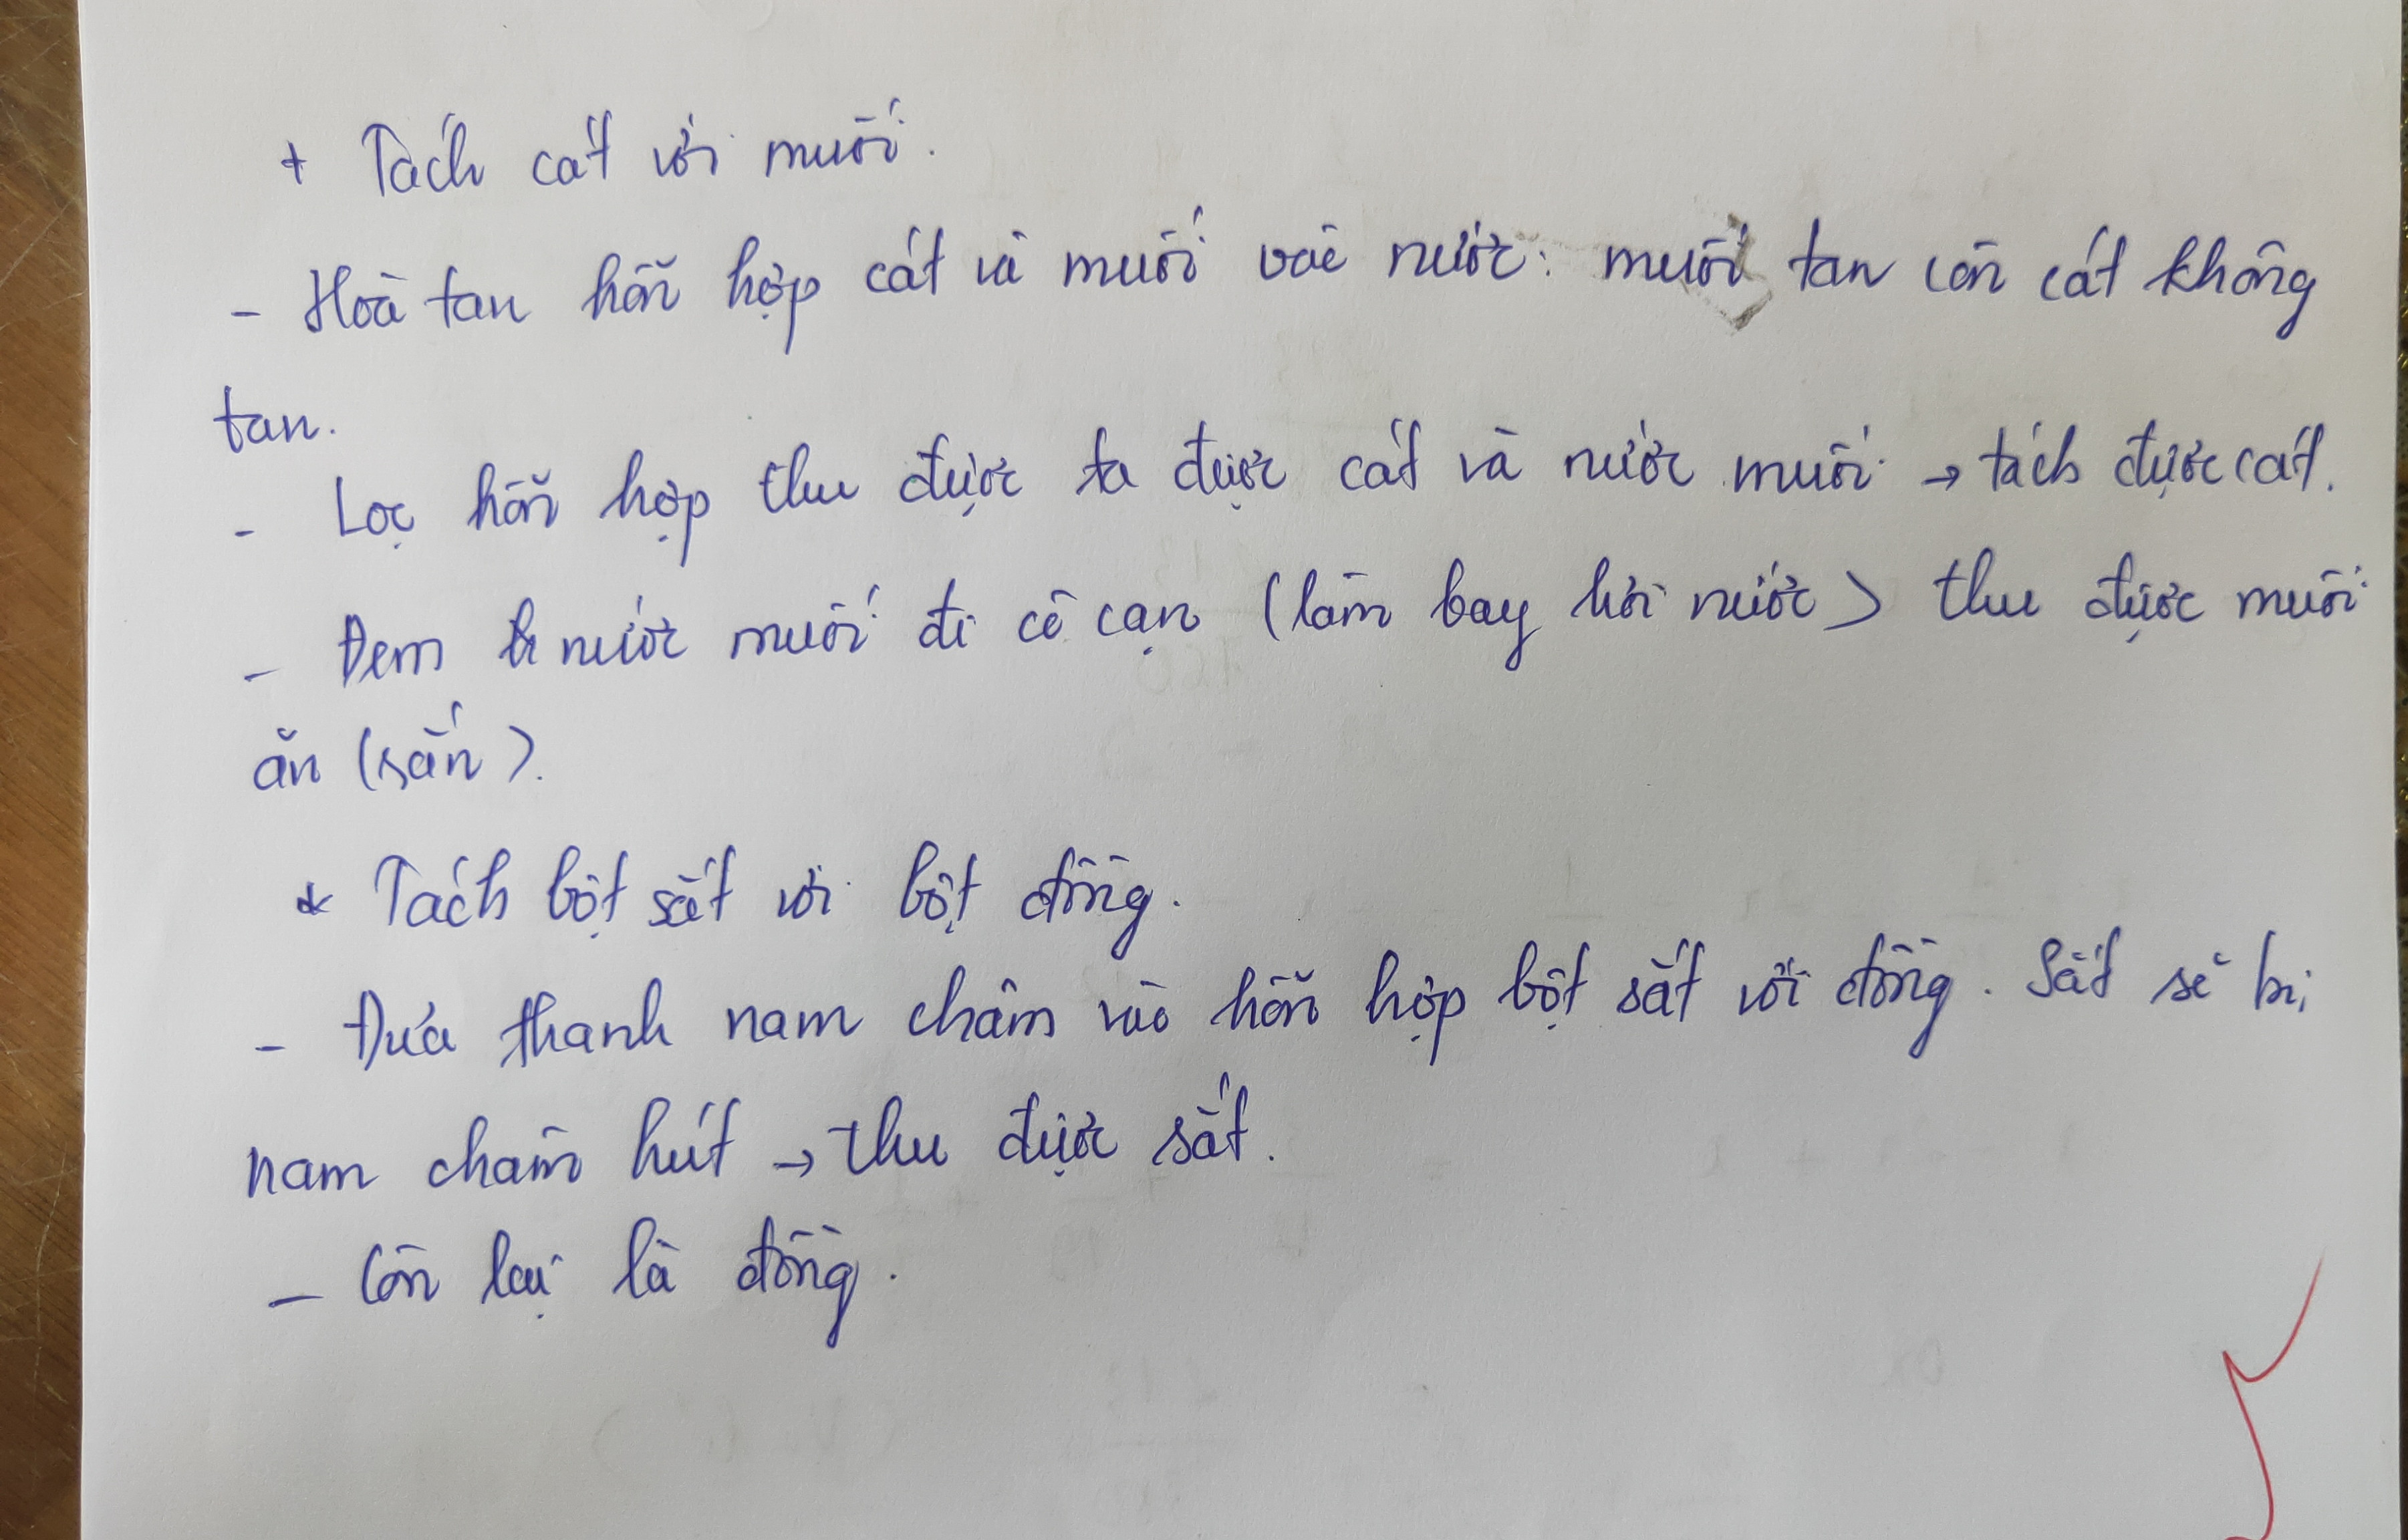 + Tách cát với muối.
- Hoà tan hỗn hợp cát và muối vào nước: muối tan còn cát không
tan.
- Lọc hỗn hợp thu được ta được cát và nước muối → tách được cát.
- Đem nước muối đi cô cạn (làm bay hơi nước) thu được muối
ăn (rắn).
* Tách bột sắt với bột đồng.
- Đưa thanh nam châm vào hỗn hợp bột sắt với đồng. Sắt sẽ bị
nam châm hút → thu được sắt.
- Còn lại là đồng.